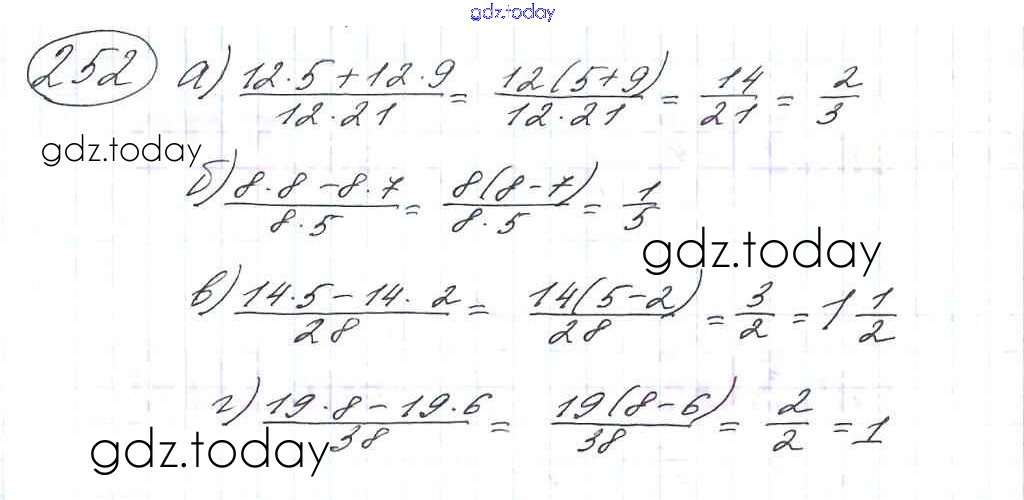 gdz.today
252 а) (12·5+12·9)/(12·21) = 12(5+9)/(12·21) = 14/21 = 2/3
gdz.today
б) (8·8−8·7)/(8·5) = 8(8−7)/(8·5) = 1/5
gdz.today
в) (14·5−14·2)/28 = 14(5−2)/28 = 3/2 = 1 1/2
г) (19·8−19·6)/38 = 19(8−6)/38 = 2/2 = 1
gdz.today